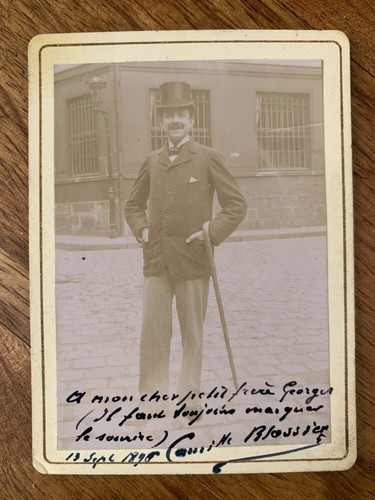 A mon cher petit frère Georges
(Il faut toujours marquer
le sourire) Camille Blossier
13 Sept 1896